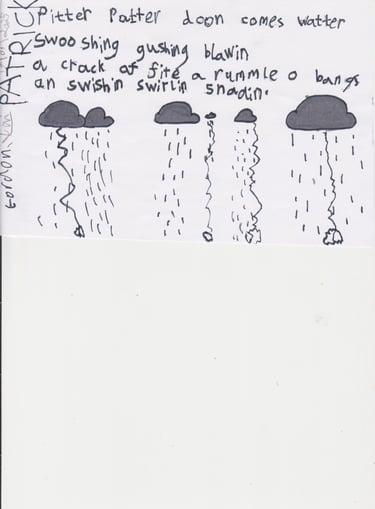 Pitter Patter doon comes watter
Swooshing gushing blawin
a crack of fire a rummle o bangs
an swishin swirlin snadin.
PATRICK
Gordon